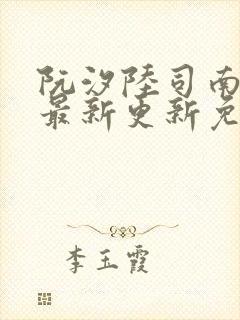 阮汐陸司南
最新更新免
李玉霞